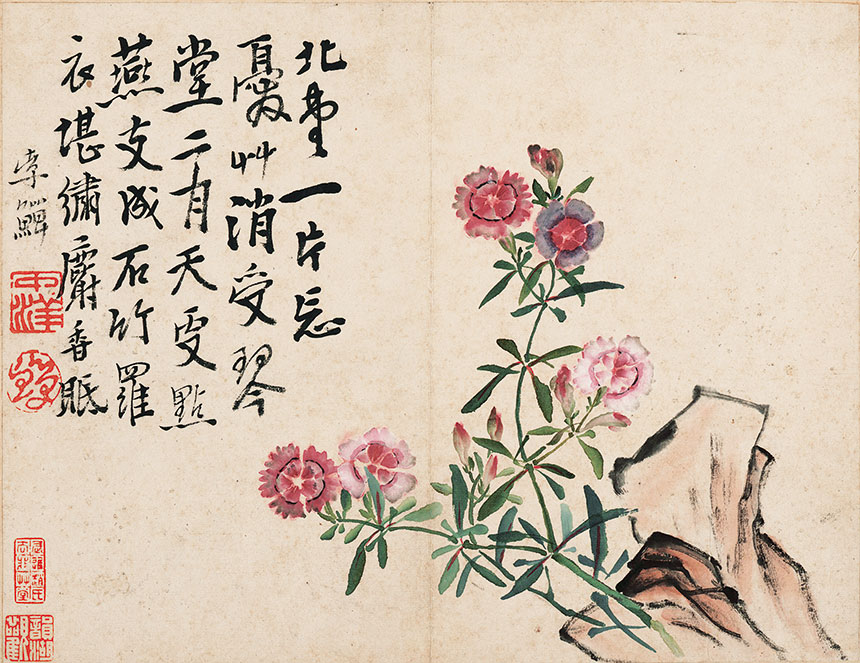 北堂一片忘
憂艸消受琴
堂二月天更點
燕支成石竹羅
衣堪繡麝香眠
李鱓
中洋